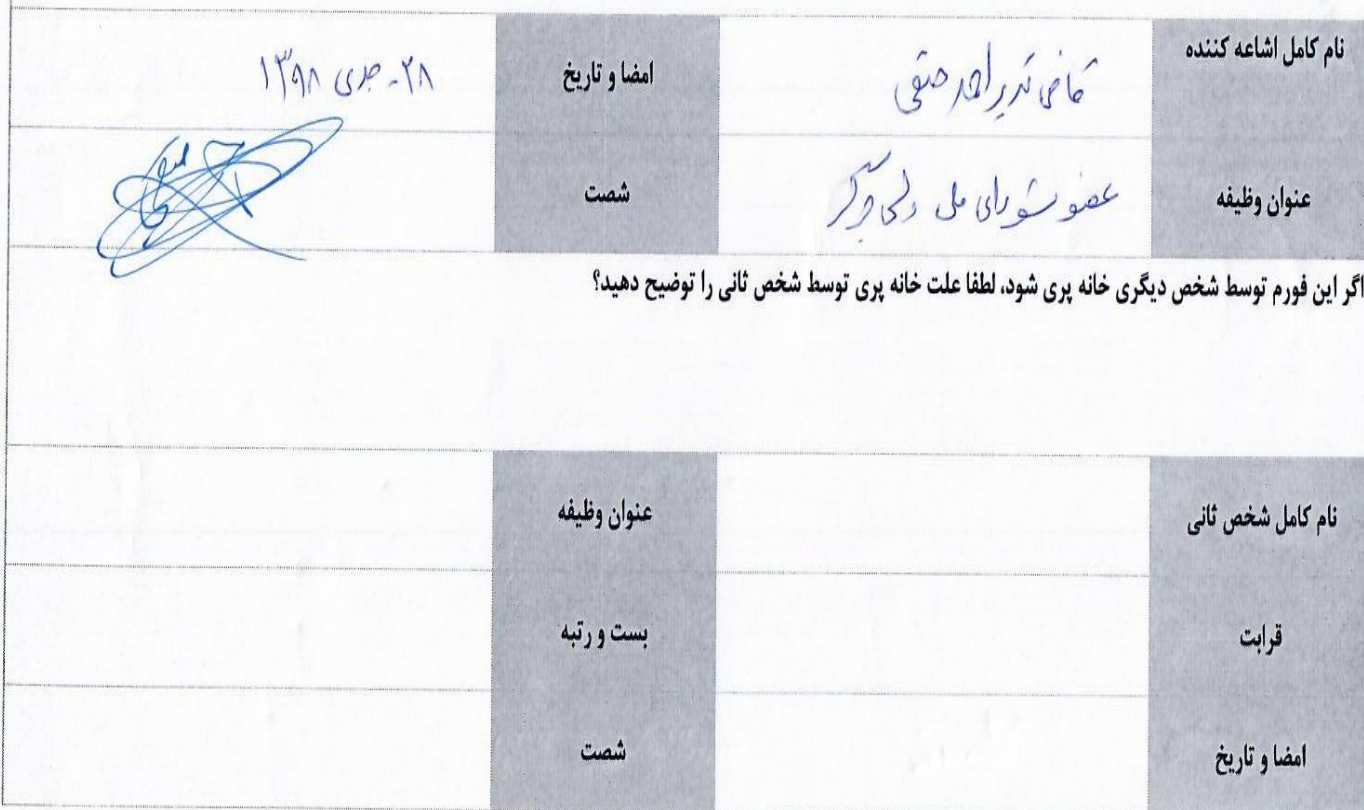 نام کامل اشاعه کننده قاضی نذیر احمد حنفی امضا و تاریخ ۲۸- جدی ۱۳۹۸
عنوان وظیفه عضو شورای ملی ولسی جرگه شصت
اگر این فورم توسط شخص دیگری خانه پری شود، لطفا علت خانه پری توسط شخص ثانی را توضیح دهید؟
نام کامل شخص ثانی عنوان وظیفه
قرابت بست و رتبه
امضا و تاریخ شصت